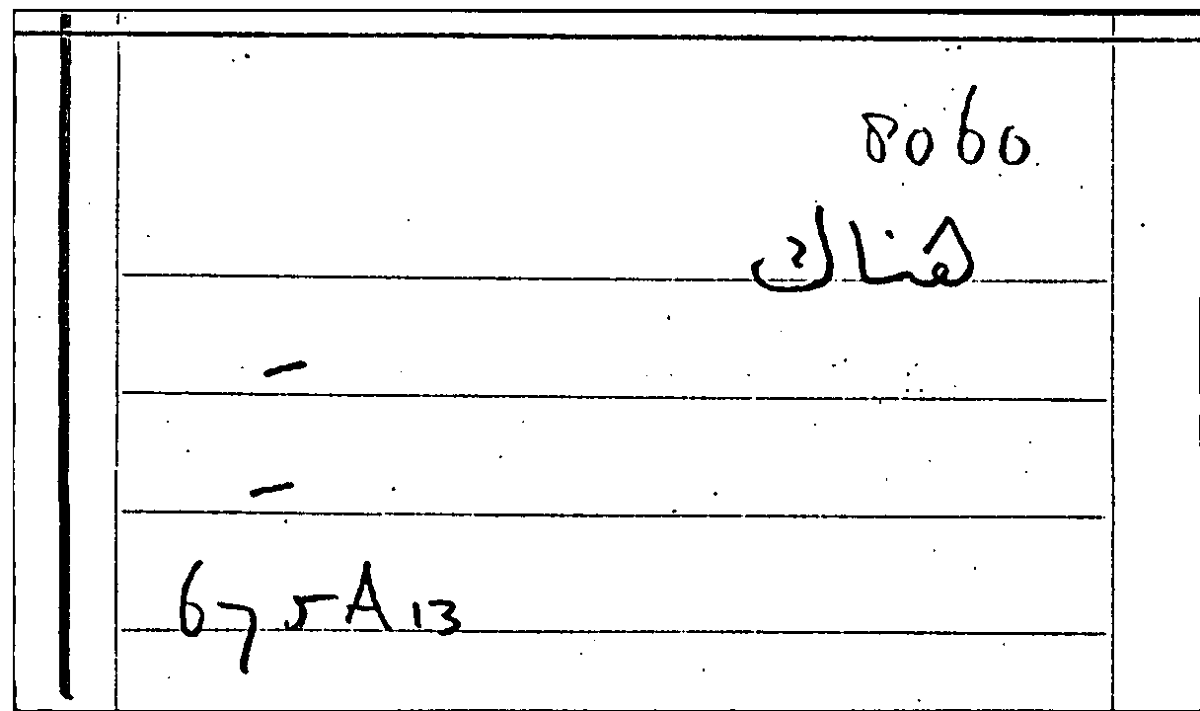 8060
هناك
-
-
675A13